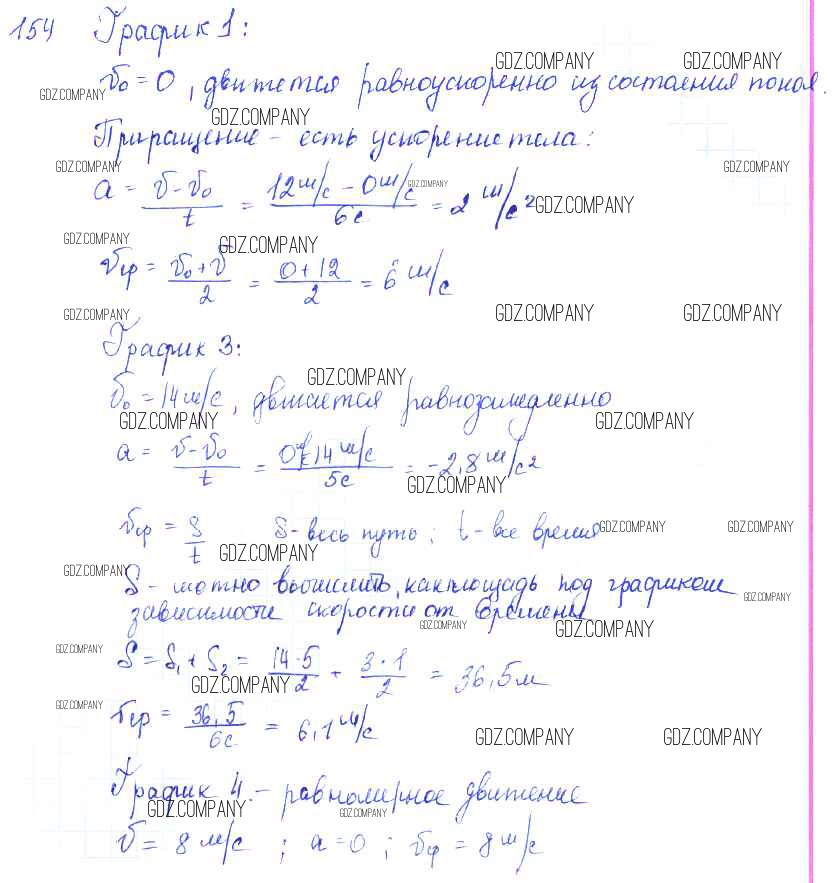 154 График 1:
GDZ.COMPANY GDZ.COMPANY
v₀ = 0, движется равноускоренно из состояния покоя.
GDZ.COMPANY
GDZ.COMPANY
Приращение - есть ускорение тела:
GDZ.COMPANY GDZ.COMPANY
a = (v - v₀)/t = (12 м/с - 0 м/с)/6с = 2 м/с²
GDZ.COMPANY
GDZ.COMPANY
GDZ.COMPANY GDZ.COMPANY
vср = (v₀ + v)/2 = (0 + 12)/2 = 6 м/с
GDZ.COMPANY GDZ.COMPANY GDZ.COMPANY
График 3:
GDZ.COMPANY
v₀ = 14 м/с, движется равнозамедленно
GDZ.COMPANY GDZ.COMPANY
a = (v - v₀)/t = (0 м/с - 14 м/с)/5с = -2,8 м/с²
GDZ.COMPANY
vср = S/t S - весь путь; t - все время
GDZ.COMPANY GDZ.COMPANY
GDZ.COMPANY
GDZ.COMPANY
S - можно вычислить, как площадь под графиком
GDZ.COMPANY
зависимости скорости от времени
GDZ.COMPANY GDZ.COMPANY
GDZ.COMPANY
S = S₁ + S₂ = (14·5)/2 + (3·1)/2 = 36,5м
GDZ.COMPANY
GDZ.COMPANY
vср = 36,5/6с = 6,1 м/с
GDZ.COMPANY GDZ.COMPANY
График 4. - равномерное движение
GDZ.COMPANY GDZ.COMPANY
v = 8 м/с ; a = 0 ; vср = 8 м/с